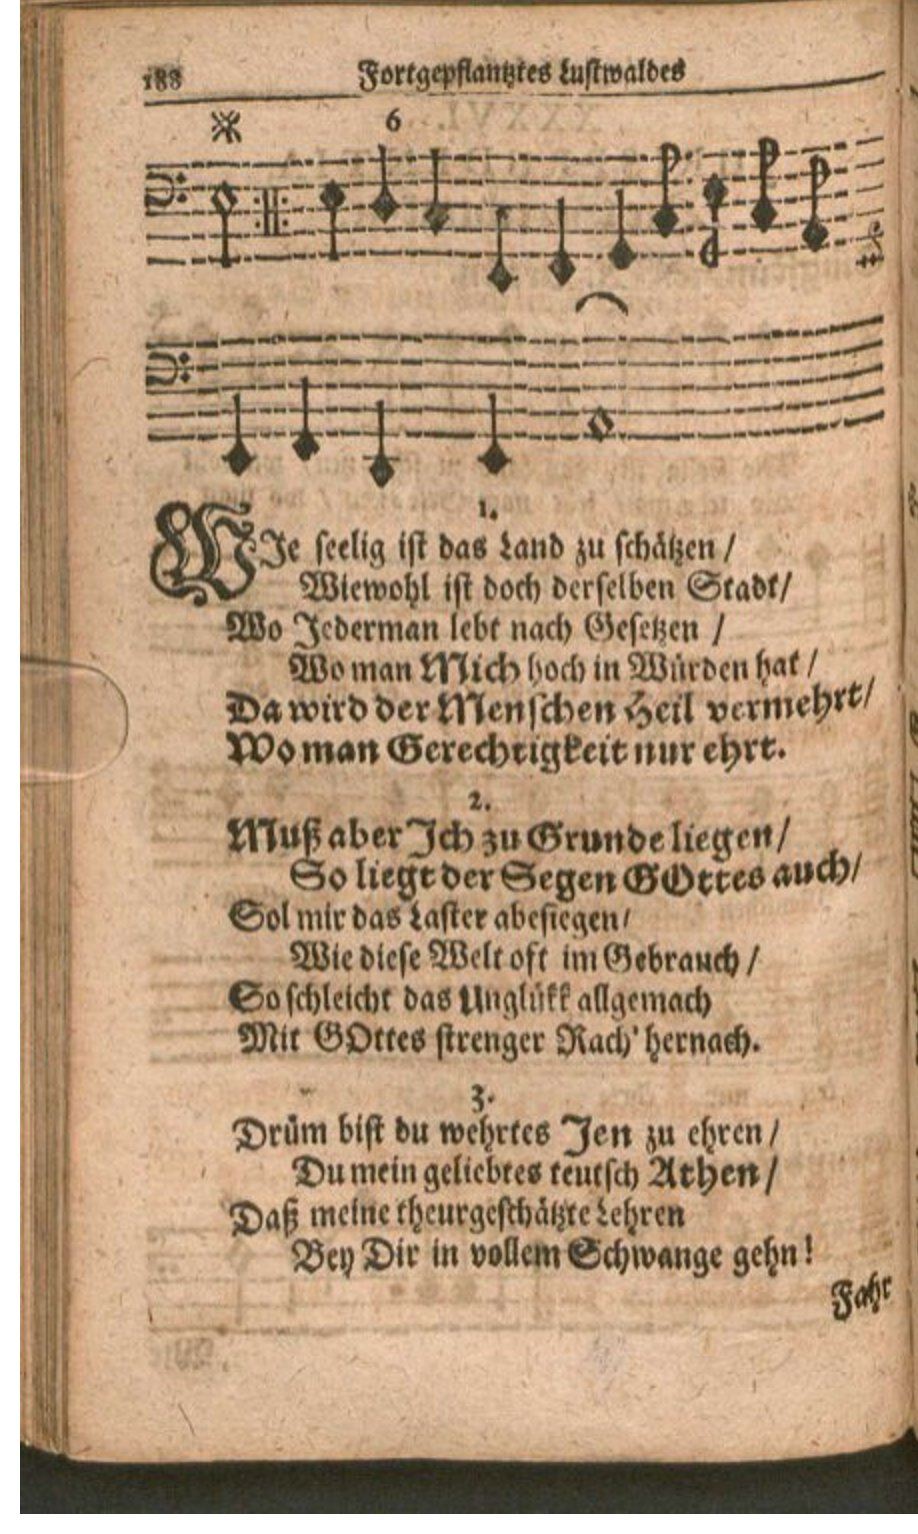 188 Fortgepflantztes Lustwaldes
6
1.
WJe seelig ist das Land zu schätzen /
Wiewohl ist doch derselben Stadt /
Wo Jederman lebt nach Gesetzen /
Wo man Mich hoch in Würden hat /
Da wird der Menschen Heil vermehrt /
Wo man Gerechtigkeit nur ehrt.
2.
Muß aber Jch zu Grunde liegen /
So liegt der Segen GOttes auch /
Sol mir das Laster abesiegen /
Wie diese Welt oft im Gebrauch /
So schleicht das Unglükk allgemach
Mit GOttes strenger Rach' hernach.
3.
Drüm bist du wehrtes Jen zu ehren /
Du mein geliebtes teutsch Athen /
Daß meine theurgeschätzte Lehren
Bey Dir in vollem Schwange gehn!
Fahr